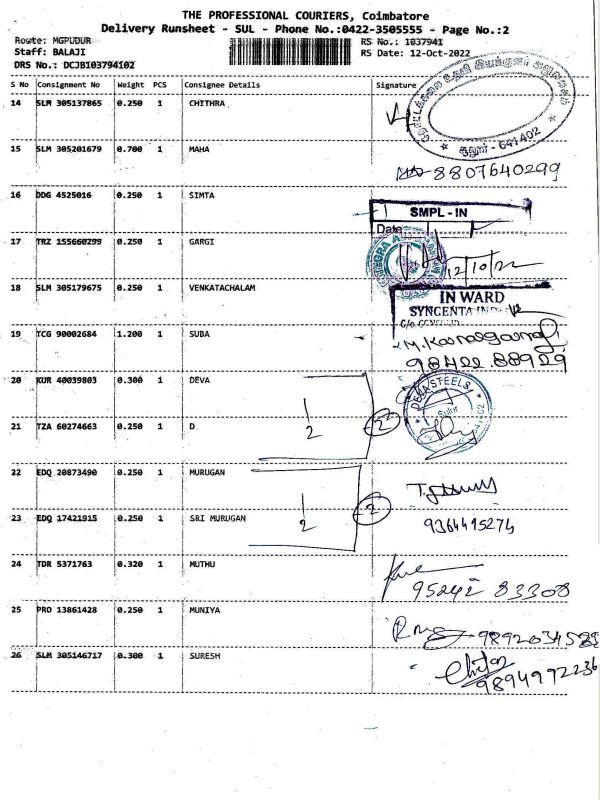 THE PROFESSIONAL COURIERS, Coimbatore
Delivery Runsheet - SUL - Phone No.:0422-3505555 - Page No.:2
Route: MGPUDUR RS No.: 1037941
Staff: BALAJI RS Date: 12-Oct-2022
DRS No.: DCJB103794102
S No Consignment No Weight PCS Consignee Details Signature
14 SLM 305137865 0.250 1 CHITHRA
சூலூர் - 641402
15 SLM 305201679 0.700 1 MAHA
8807640299
16 DDG 4525016 0.250 1 SIMTA
SMPL - IN
Date
17 TRZ 155660299 0.250 1 GARGI
12/10/22
18 SLM 305179675 0.250 1 VENKATACHALAM
IN WARD
SYNGENTA
19 TCG 90002684 1.200 1 SUBA
98422 88929
20 KUR 40039803 0.300 1 DEVA
DEVA STEELS
Sulur
21 TZA 60274663 0.250 1 D
1
2
2
22 EDQ 20873490 0.250 1 MURUGAN
23 EDQ 17421915 0.250 1 SRI MURUGAN
1
2
2
9364495274
24 TDR 5371763 0.320 1 MUTHU
95242 83308
25 PRO 13861428 0.250 1 MUNIYA
26 SLM 305146717 0.300 1 SURESH
9894992236